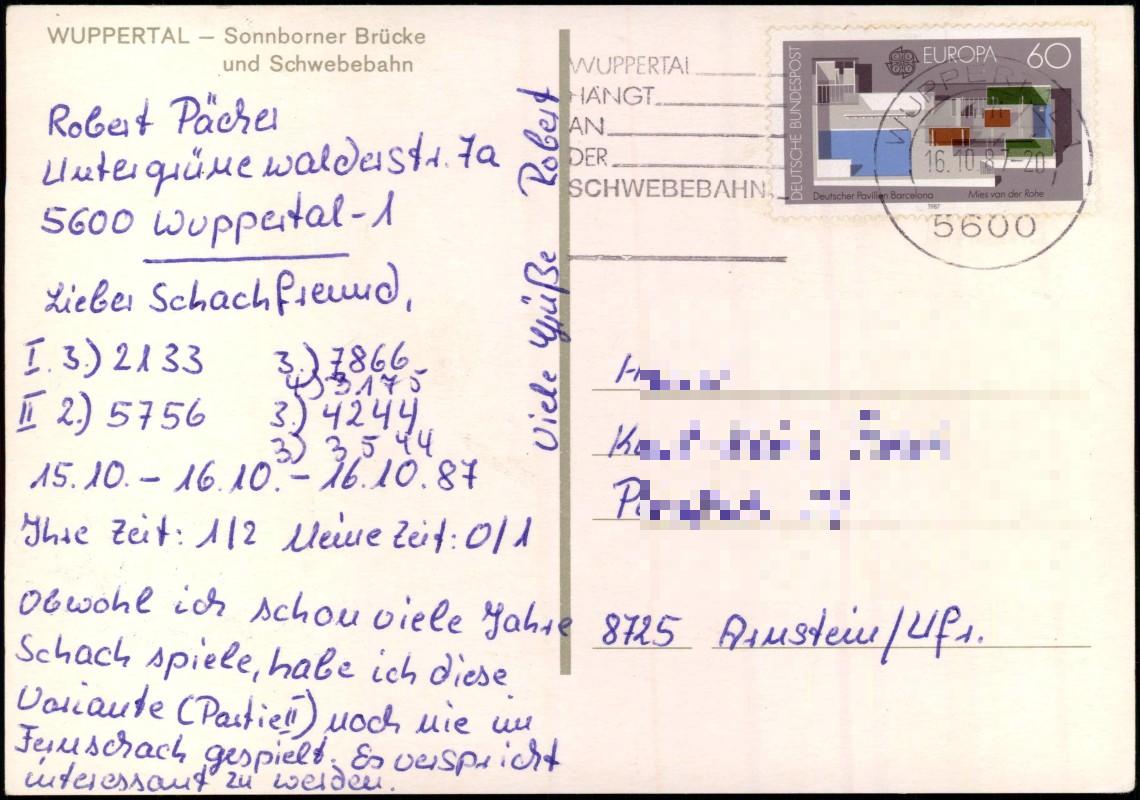 WUPPERTAL – Sonnborner Brücke
und Schwebebahn
Robert Pächer
Untergrünewalderstr. 7a
5600 Wuppertal-1
Lieber Schachfreund,
I. 3.) 2133 3.) 7866
4.) 3175
II 2.) 5756 3.) 4244
3) 3544
15.10. – 16.10. – 16.10.87
Ihre Zeit: 1/2 Meine Zeit: 0/1
Obwohl ich schon viele Jahre
Schach spiele, habe ich diese
Variante (Partie II) noch nie im
Fernschach gespielt. Es verspricht
interessant zu werden.
Viele Grüße Robert
WUPPERTAL
HÄNGT
AN
DER
SCHWEBEBAHN
DEUTSCHE BUNDESPOST
EUROPA 60
Deutscher Pavillon Barcelona Mies van der Rohe
1987
WUPPERTAL 1
16.10.87-20
5600
8725 Arnstein/Ufr.